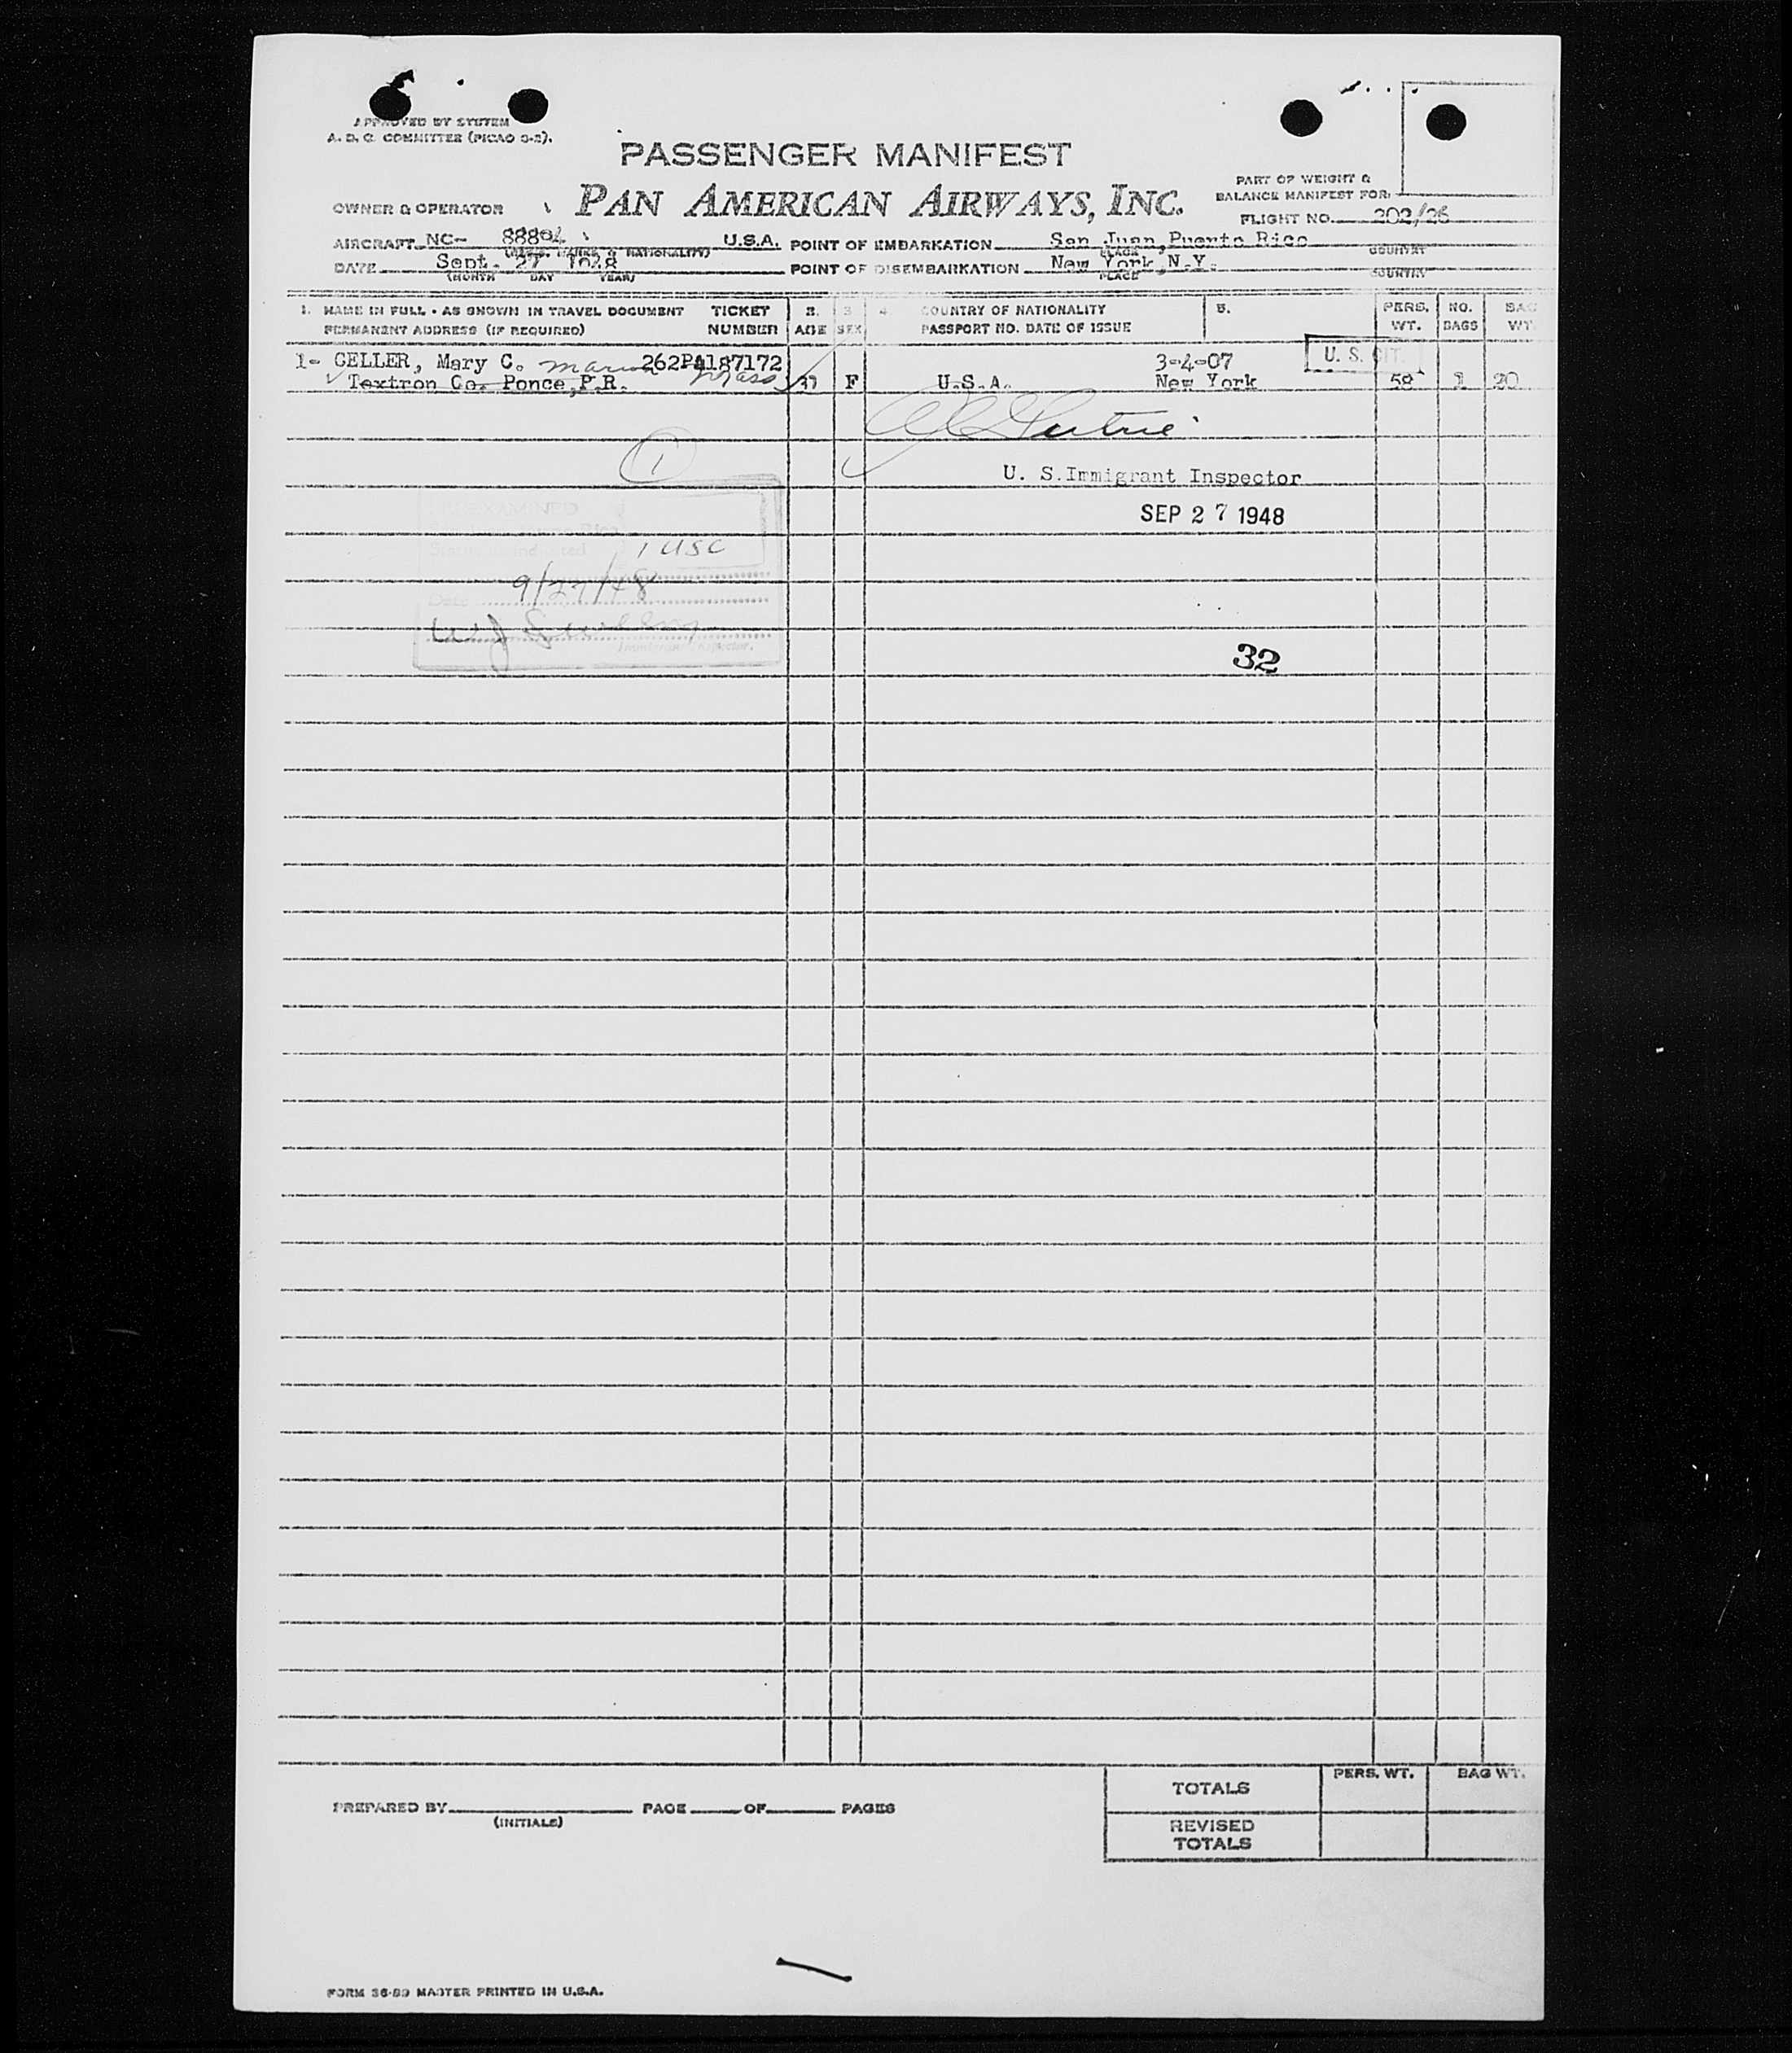 APPROVED BY SYSTEM
A. D. C. COMMITTEE (PICAO 9-2).
PASSENGER MANIFEST
OWNER & OPERATOR PAN AMERICAN AIRWAYS, INC.
PART OF WEIGHT &
BALANCE MANIFEST FOR
FLIGHT NO. 202/26
AIRCRAFT NC- 88804 U.S.A. POINT OF EMBARKATION San Juan, Puerto Rico
MARKS & NATIONALITY) PLACE COUNTRY
DATE Sept. 27 1948 POINT OF DISEMBARKATION New York, N.Y.
(MONTH DAY YEAR) PLACE COUNTRY
1. NAME IN FULL - AS SHOWN IN TRAVEL DOCUMENT TICKET 2. 3. 4. COUNTRY OF NATIONALITY 5. PERS. NO. BAG
PERMANENT ADDRESS (IF REQUIRED) NUMBER AGE SEX PASSPORT NO. DATE OF ISSUE WT. BAGS WT.
1- GELLER, Mary C. 262PA187172 3-4-07 U. S. CIT.
Textron Co. Ponce, P.R. Mass F U.S.A. New York 58 1 20
1
U. S. Immigrant Inspector
SEP 27 1948
1 USC
Date 9/27/48
Immigrant Inspector.
32
TOTALS PERS. WT. BAG WT.
PREPARED BY PAGE OF PAGES
(INITIALS)
REVISED
TOTALS
FORM 36-89 MASTER PRINTED IN U.S.A.